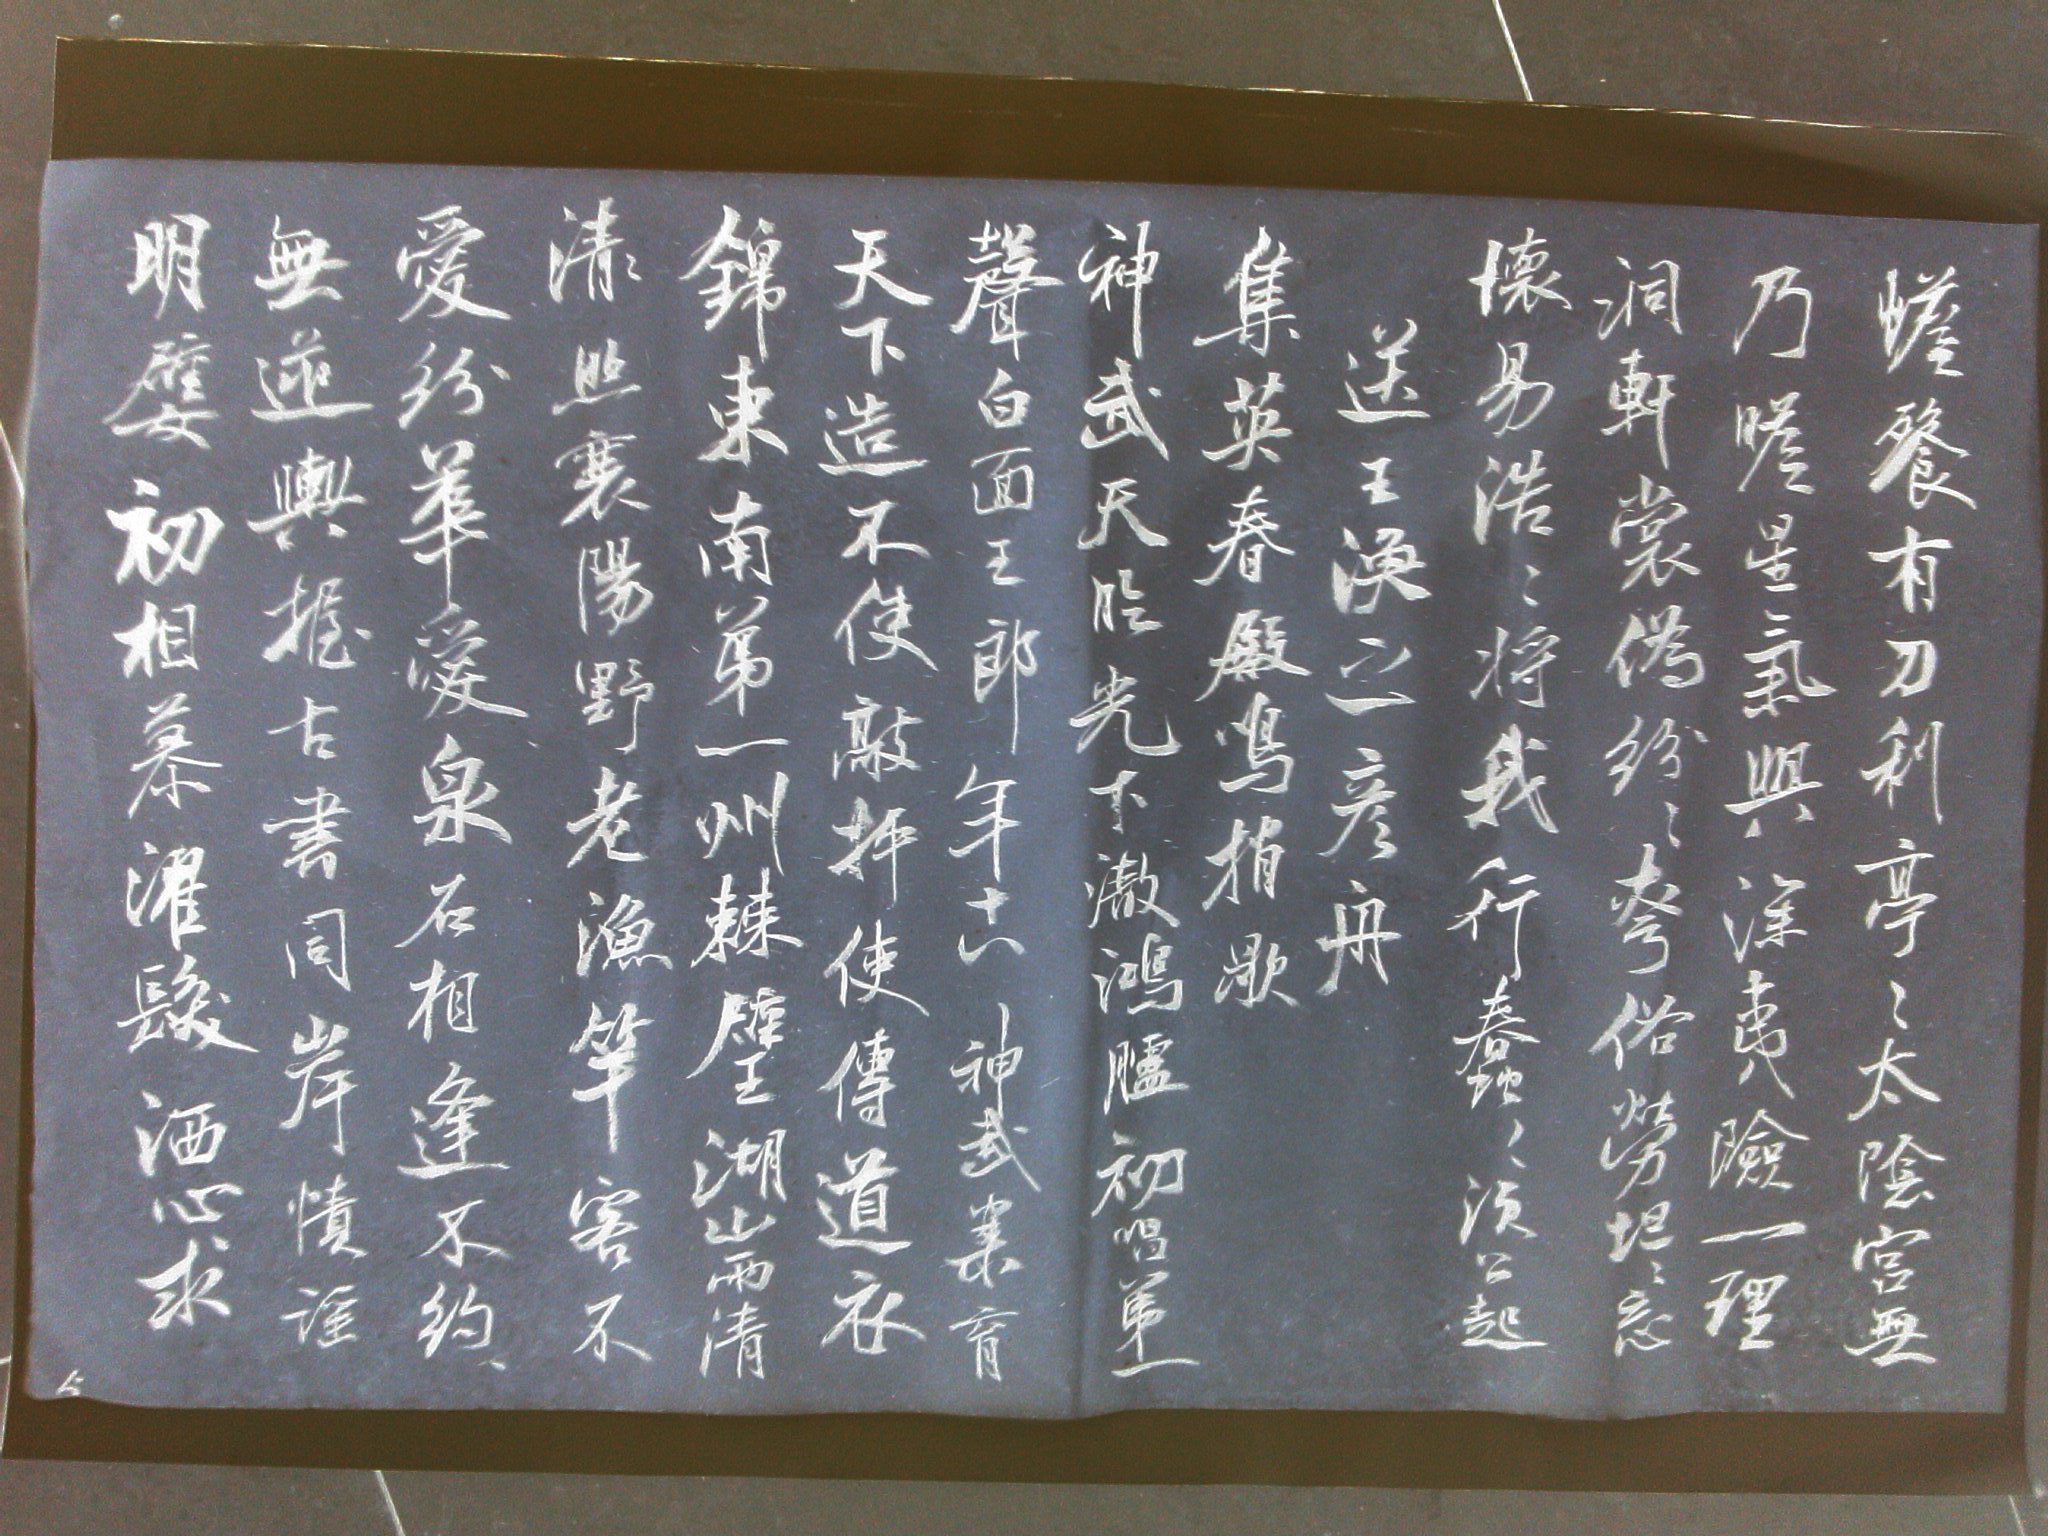 蟾餐有刀利亭〻太陰宮無
乃瞻星氣興深夷險一理
洞軒裳偽紛〻夸俗勞坦〻忘
懷易浩〻將我行蠢〻須公起
送王渙之彥舟
集英春殿鳴捎歇
神武天臨光下澈鴻臚初唱第一
聲白面王郎年十八神武樂育
天下造不使敲抨使傳道衣
錦東南第一州棘璧湖山兩清
清照襄陽野老漁竿客不
愛紛華愛泉石相逢不約
無逆輿握古書同岸幘謠
明嬖初相慕濯髮洒心求